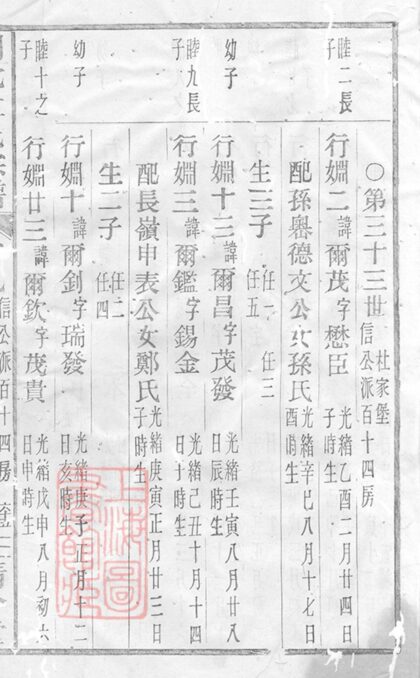 〇第三十三世 杜家堡 信公派百十四房
睦二長子 行嫺二諱爾茂字懋臣 光緒乙酉二月廿四日子時生
配孫舉德文公女孫氏 光緒辛巳八月十七日酉時生
生三子 任一 任三 任五
幼子 行嫺十三諱爾昌字茂發 光緒壬寅八月廿八日辰時生
睦九長子 行嫺三諱爾鑑字錫金 光緒己丑十月十四日十時生
配長嶺申表公女鄭氏 光緒庚寅正月廿三日子時生
生二子 任二 任四
幼子 行嫺十諱爾釗字瑞發 光緒庚子正月十二日亥時生
睦十之子 行嫺廿三諱爾欽字茂貴 光緒戊申八月初六日申時生
信公派百十四房
上海圖